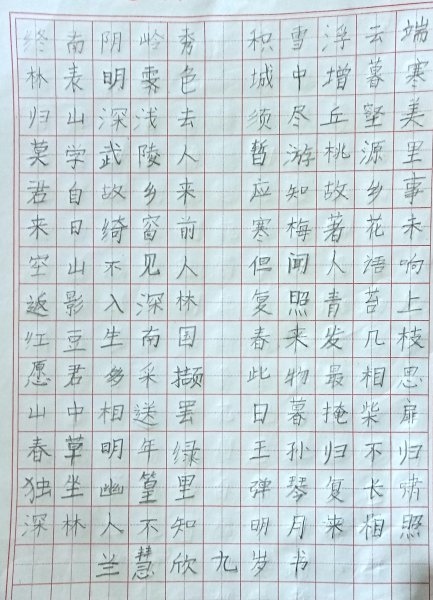 终南阴岭秀 积雪浮云端
林表明霁色 城中增暮寒
归山深浅去 须尽丘壑美
莫学武陵人 暂游桃源里
君自故乡来 应知故乡事
来日绮窗前 寒梅著花未
空山不见人 但闻人语响
返影入深林 复照青苔上
红豆生南国 春来发几枝
愿君多采撷 此物最相思
山中相送罢 日暮掩柴扉
春草明年绿 王孙归不归
独坐幽篁里 弹琴复长啸
深林人不知 明月来相照
兰慧欣九岁书